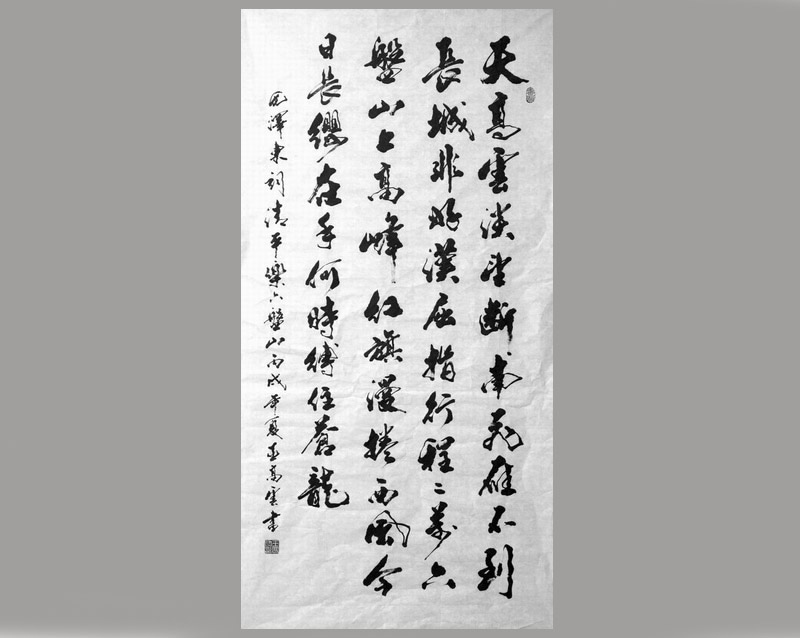 天高雲淡望斷南飛雁不到
長城非好漢屈指行程二萬六
盤山上高峰紅旗漫捲西風今
日長纓在手何時縛住蒼龍
毛澤東詞清平樂六盤山丙戌年夏高雲書